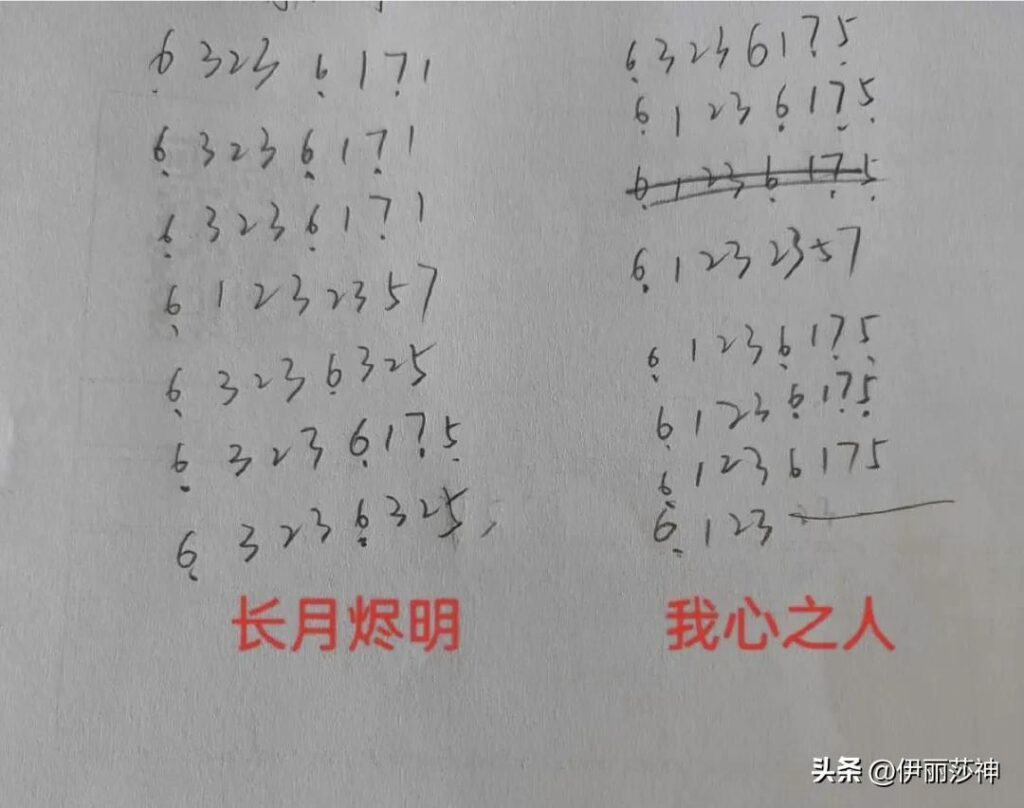 6 3 2 3 6 1 7 1
6 3 2 3 6 1 7 1
6 3 2 3 6 1 7 1
6 1 2 3 2 3 5 7
6 3 2 3 6 3 2 5
6 3 2 3 6 1 7 5
6 3 2 3 6 3 2 5
长月烬明
6 3 2 3 6 1 7 5
6 1 2 3 6 1 7 5
6 1 2 3 6 1 7 5
6 1 2 3 2 3 5 7
6 1 2 3 6 1 7 5
6 1 2 3 6 1 7 5
6 1 2 3 6 1 7 5
6 1 2 3
我心之人
头条 @伊丽莎神